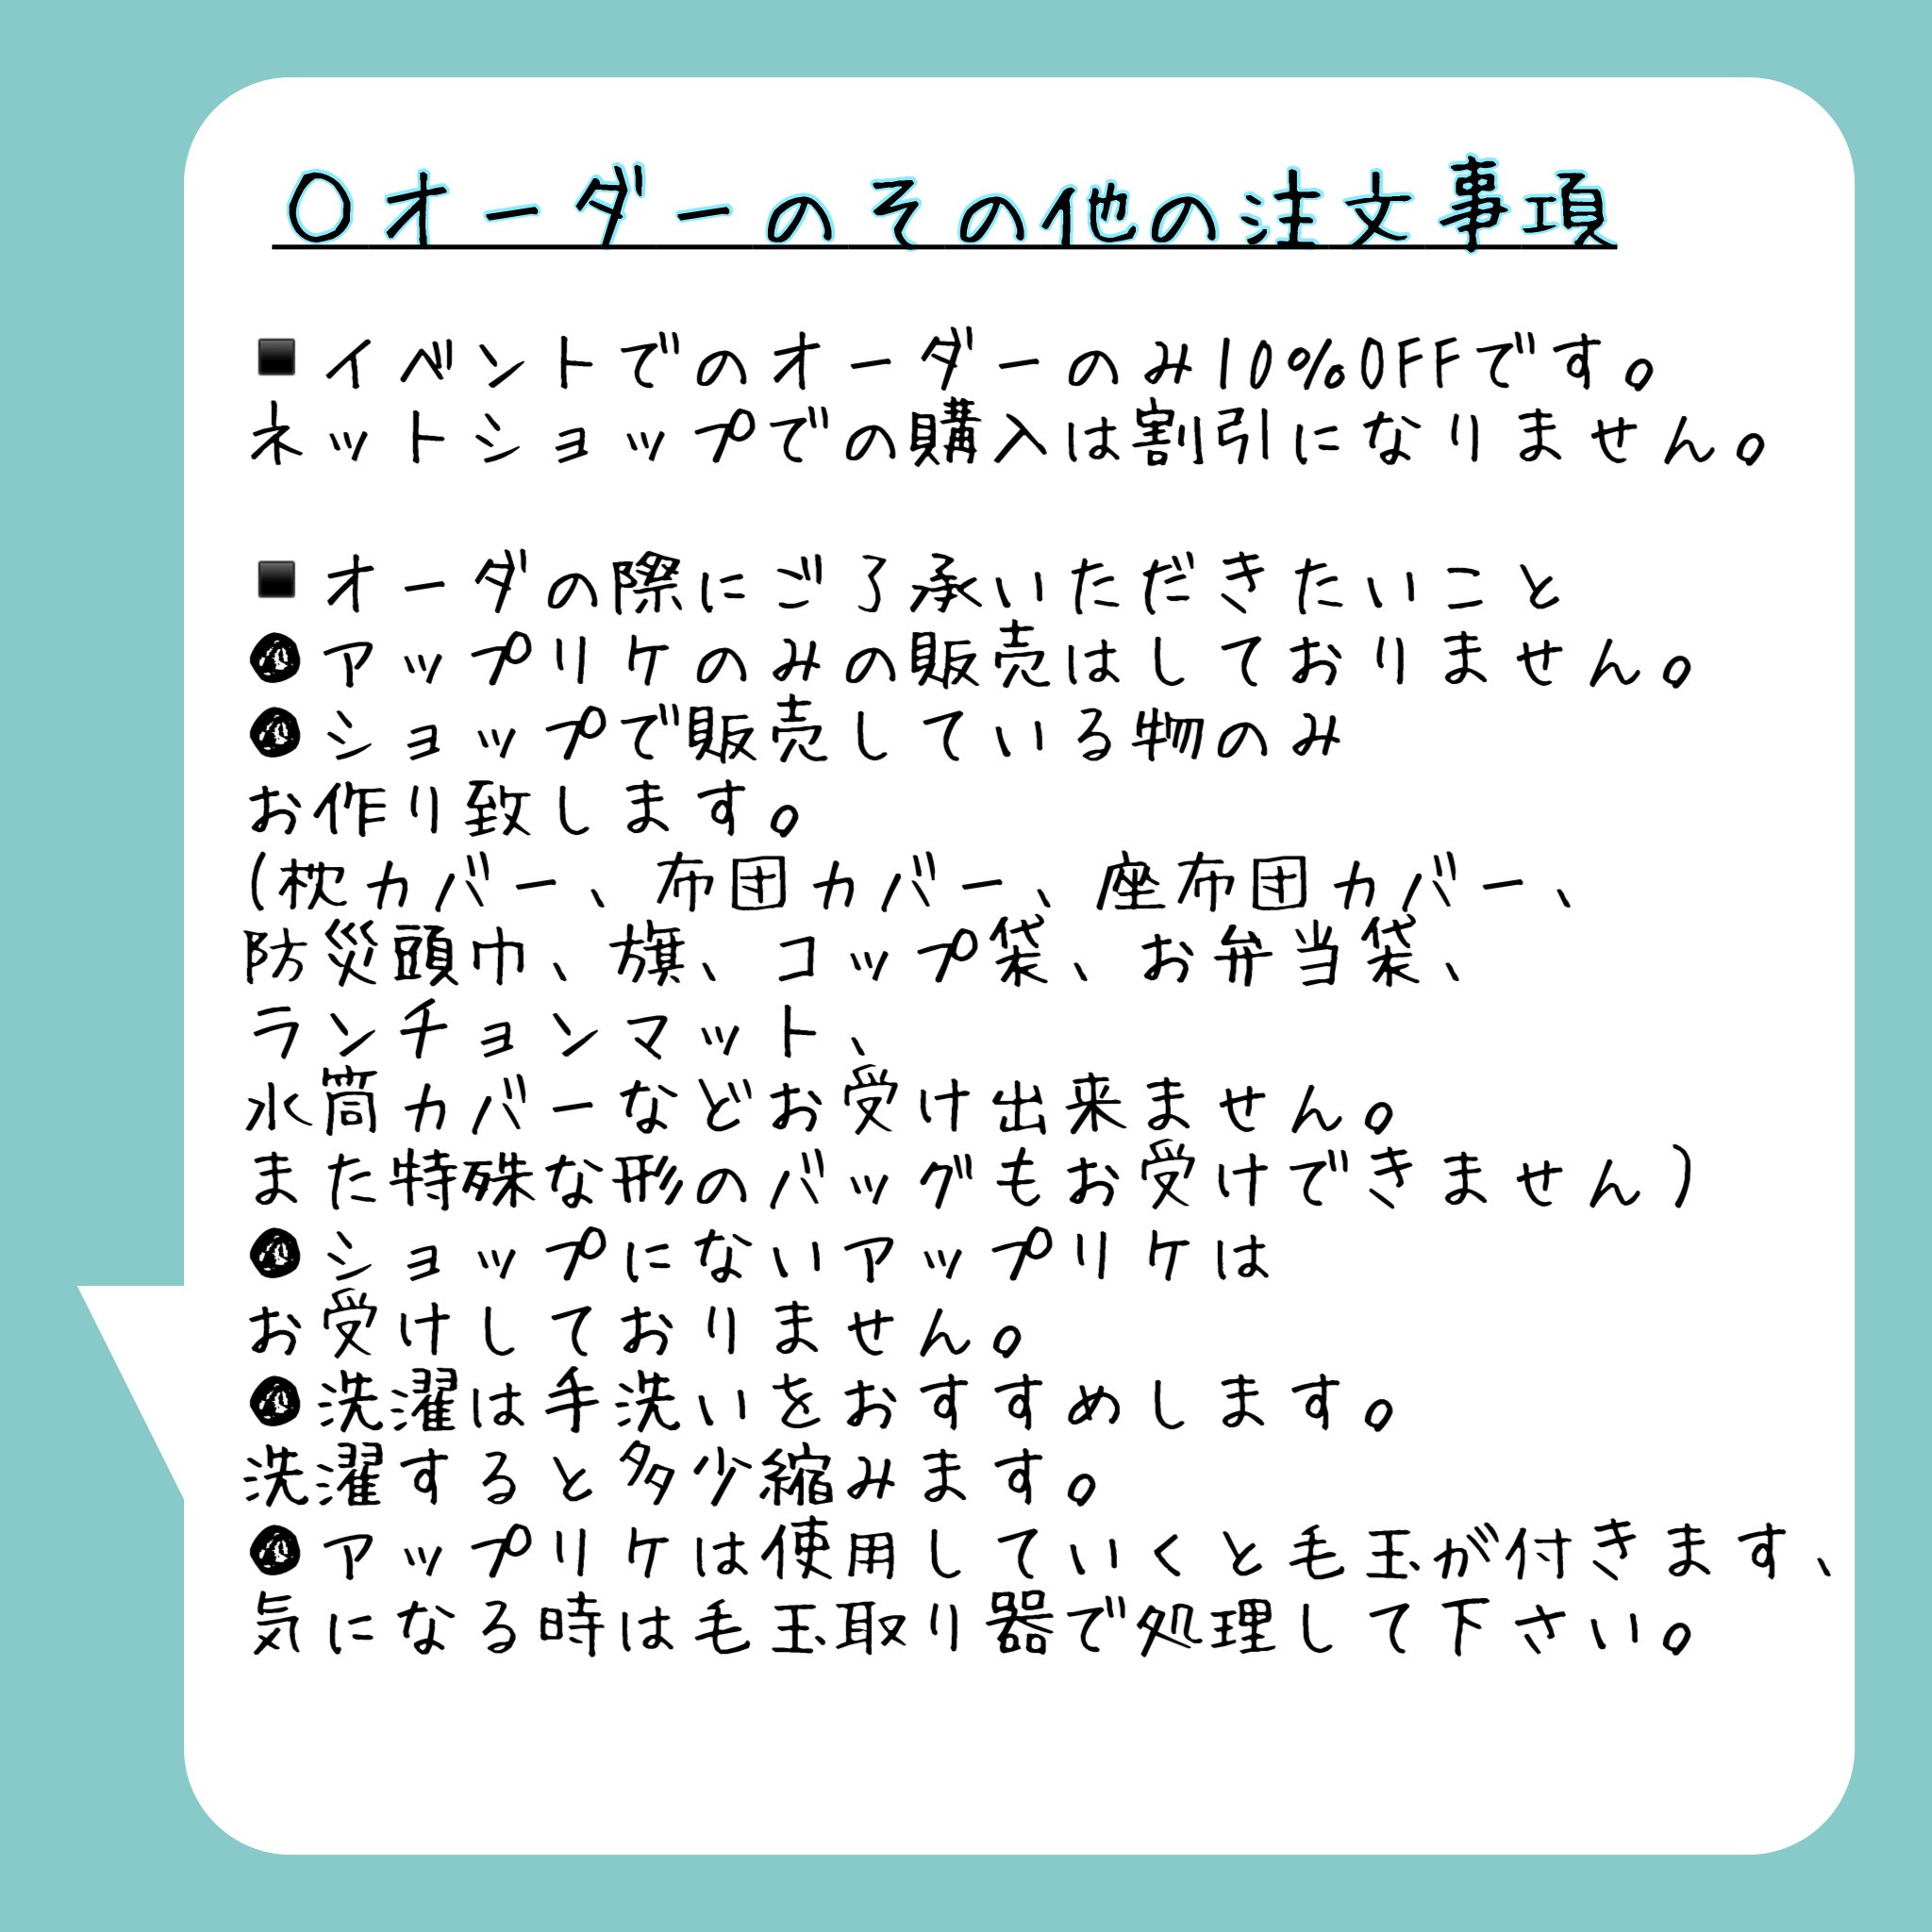 〇オーダーのその他の注文事項
◾️イベントでのオーダーのみ10%OFFです。
ネットショップでの購入は割引になりません。
◾️オーダの際にご了承いただきたいこと
●アップリケのみの販売はしておりません。
●ショップで販売している物のみ
お作り致します。
(枕カバー、布団カバー、座布団カバー、
防災頭巾、旗、コップ袋、お弁当袋、
ランチョンマット、
水筒カバーなどお受け出来ません。
また特殊な形のバッグもお受けできません)
●ショップにないアップリケは
お受けしておりません。
●洗濯は手洗いをおすすめします。
洗濯すると多少縮みます。
●アップリケは使用していくと毛玉が付きます、
気になる時は毛玉取り器で処理して下さい。